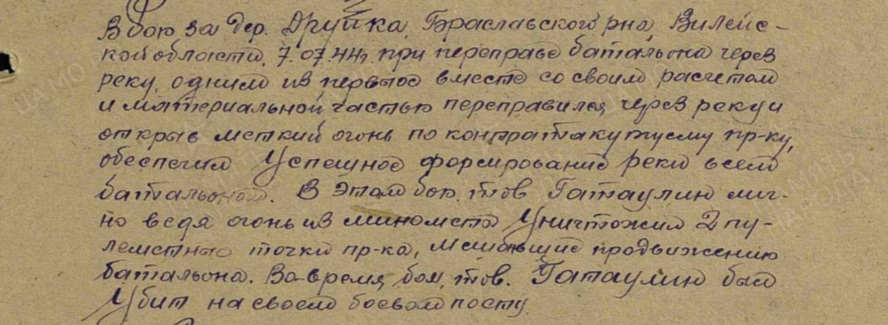 В бою за дер. Друйка, Браславского р-на, Вилейс-
кой области, 7.07.44г. при переправе батальона через
реку, одним из первых вместе со своим расчетом
и материальной частью переправился через реку и
открыв меткий огонь по контратакующему пр-ку,
обеспечил успешное форсирование реки всем
батальоном. В этом бою тов. Гатаулин лич-
но ведя огонь из миномета уничтожил 2 пу-
леметные точки пр-ка, мешавшие продвижению
батальона. Во время боя, тов. Гатаулин был
убит на своем боевом посту.